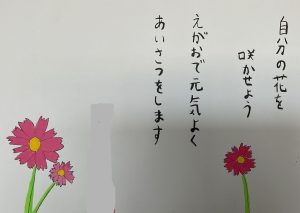 自分の花を
咲かせよう
えがおで元気よく
あいさつをします